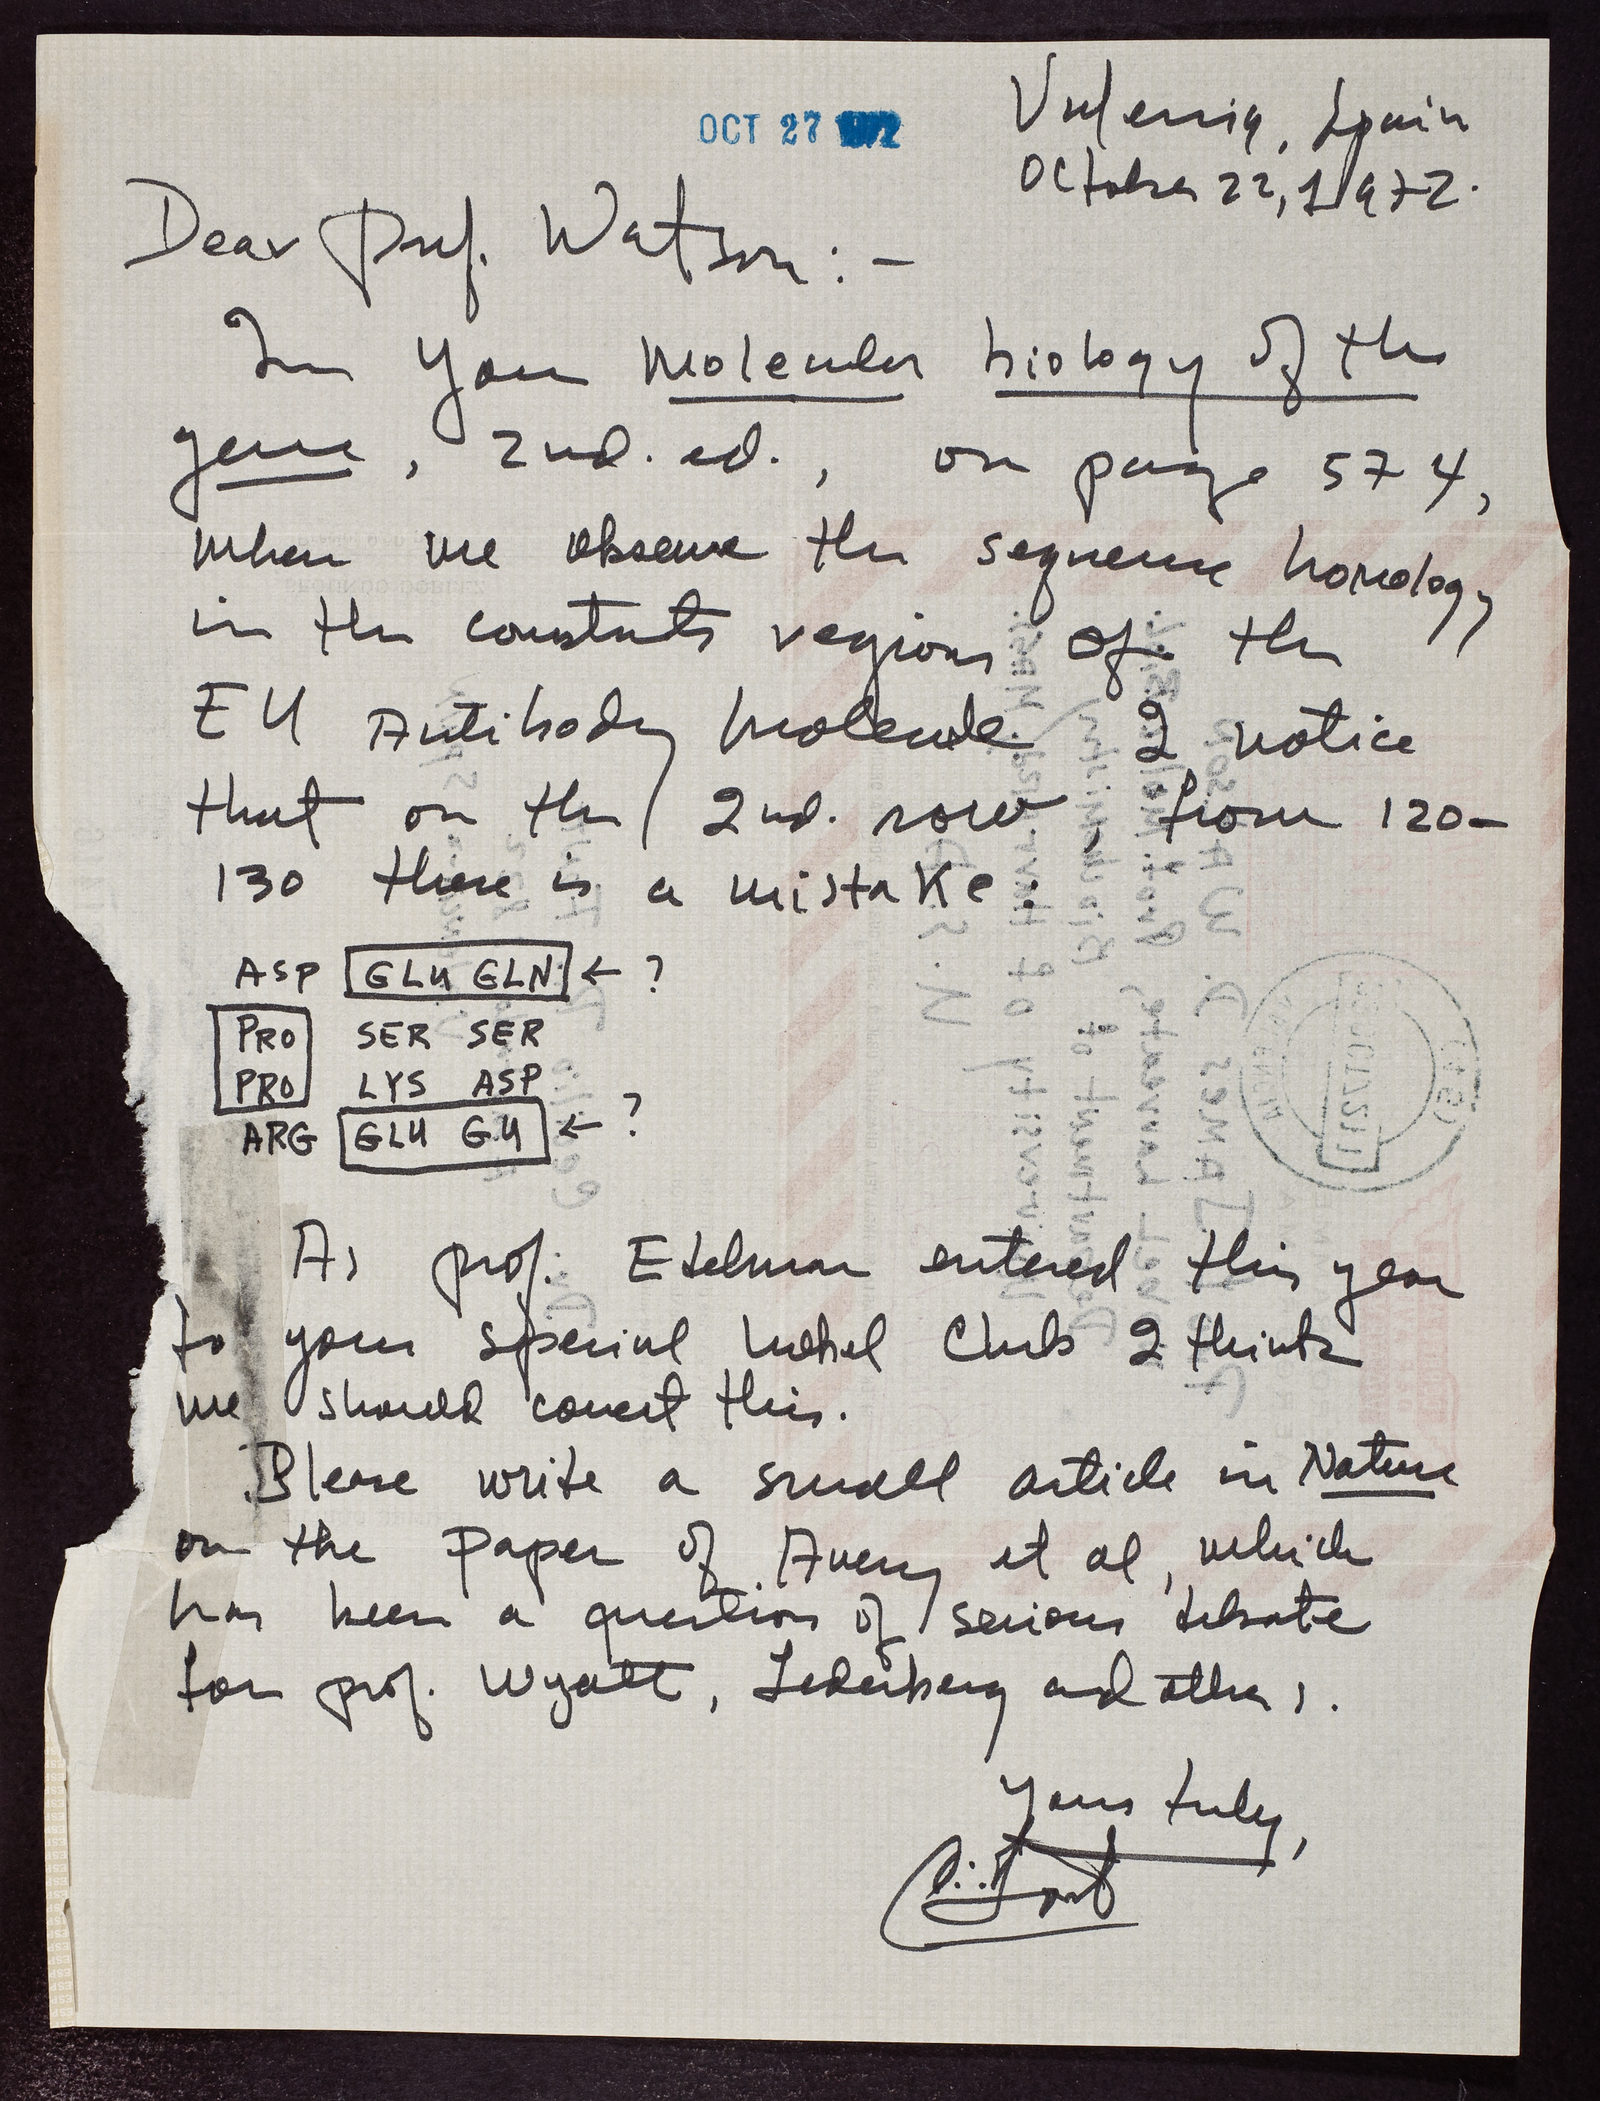 OCT 27 1972
Valencia, Spain
October 22, 1972.
Dear Prof. Watson:-
In your Molecular biology of the
gene, 2nd. ed., on page 574,
when we observe the sequence homology
in the constants regions of the
EU Antibody molecule I notice
that on the 2nd. row from 120-
130 there is a mistake.
ASP GLU GLN ← ?
PRO SER SER
PRO LYS ASP
ARG GLU GLU ← ?
As prof. Edelman entered this year
to your special Nobel Club I think
we should correct this.
Please write a small article in Nature
on the paper of Avery et al, which
has been a question of serious debate
for prof. Wyatt, Lederberg and others.
Yours truly,